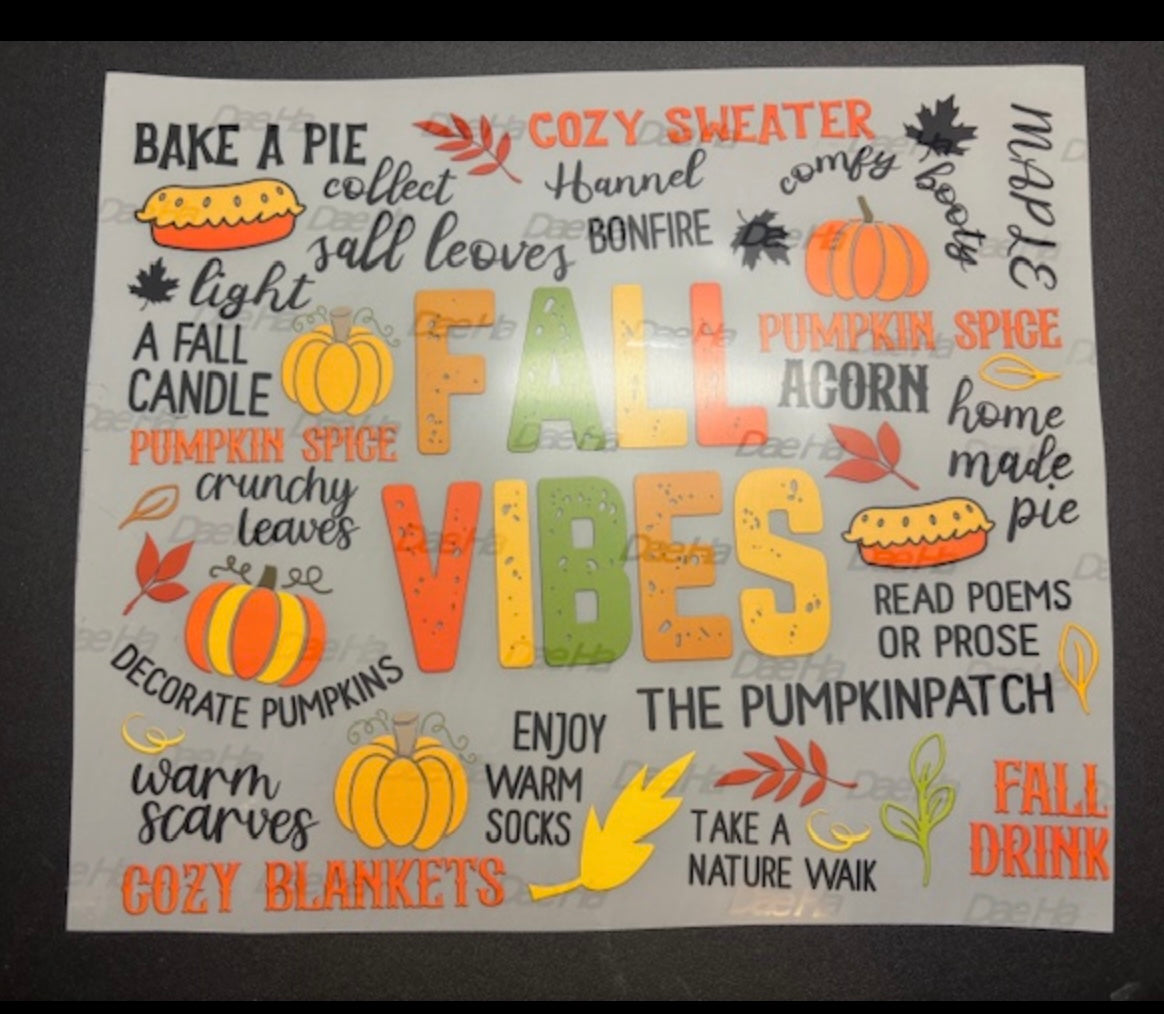 BAKE A PIE
COZY SWEATER
MAPLE
collect
Hannel
comfy
booty
sall leoves
BONFIRE
light
A FALL
CANDLE
FALL
PUMPKIN SPICE
ACORN
home
made
pie
PUMPKIN SPICE
crunchy
leaves
VIBES
READ POEMS
OR PROSE
DECORATE PUMPKINS
THE PUMPKINPATCH
ENJOY
WARM
SOCKS
warm
scarves
TAKE A
NATURE WAIK
FALL
DRINK
COZY BLANKETS
DaeHa